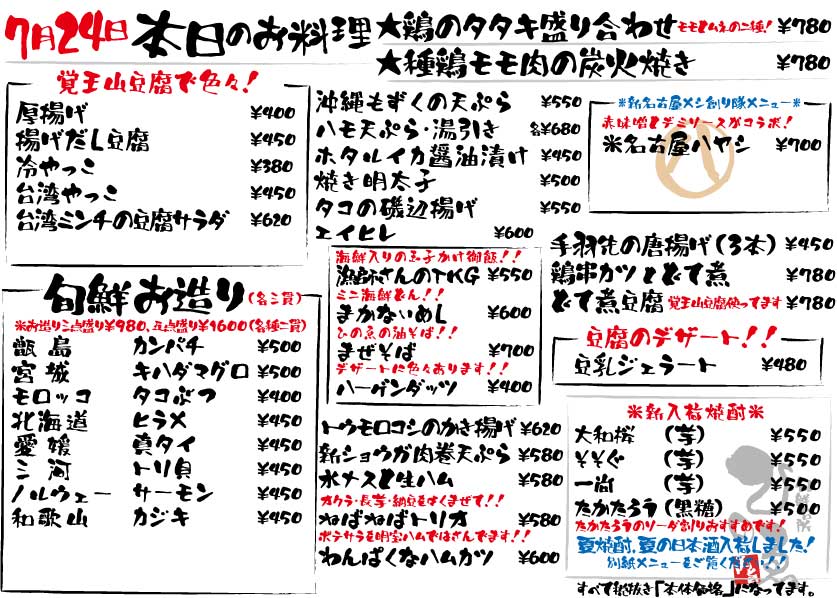 7月24日 本日のお料理
★鶏のタタキ盛り合わせ モモとムネの二種! ¥780
★種鶏モモ肉の炭火焼き ¥780
覚王山豆腐で色々!
厚揚げ ¥400
揚げだし豆腐 ¥450
冷やっこ ¥380
台湾やっこ ¥450
台湾ミンチの豆腐サラダ ¥620
旬鮮お造り(各三貫)
※お造り三点盛り¥980、五点盛り¥1600(各種二貫)
甑島 カンパチ ¥500
宮城 キハダマグロ ¥500
モロッコ タコぶつ ¥400
北海道 ヒラメ ¥450
愛媛 真タイ ¥450
三河 トリ貝 ¥450
ノルウェー サーモン ¥450
和歌山 カジキ ¥450
沖縄もずくの天ぷら ¥550
ハモ天ぷら・湯引き 各¥680
ホタルイカ醤油漬け ¥450
焼き明太子 ¥500
タコの磯辺揚げ ¥550
エイヒレ ¥600
海鮮入りの玉子かけ御飯!!
漁師さんのTKG ¥550
ミニ海鮮どん!!
まかないめし ¥600
この魚の油そば!!
まぜそば ¥700
デザートに色々あります!!
ハーゲンダッツ ¥400
トウモロコシのかき揚げ ¥620
新ショウガ肉巻天ぷら ¥580
水ナスと生ハム ¥580
オクラ・長芋・納豆をよくまぜて!!
ねばねばトリオ ¥580
ポテサラを明宝ハムではさんでます!!
わんぱくなハムカツ ¥600
※新名古屋メシ創り隊メニュー※
赤味噌とデミソースがコラボ!
※名古屋ハヤシ ¥700
手羽先の唐揚げ(3本) ¥450
鶏串カツとどて煮 ¥780
どて煮豆腐 覚王山豆腐使ってます ¥780
豆腐のデザート!!
豆乳ジェラート ¥480
※新入荷焼酎※
大和桜 (芋) ¥550
そそぐ (芋) ¥550
一尚 (芋) ¥550
たかたろう(黒糖) ¥550
たかたろうのソーダ割りおすすめです!
夏焼酎、夏の日本酒入荷しました!
別紙メニューをご覧ください!!
すべて税抜き「本体価格」になってます。